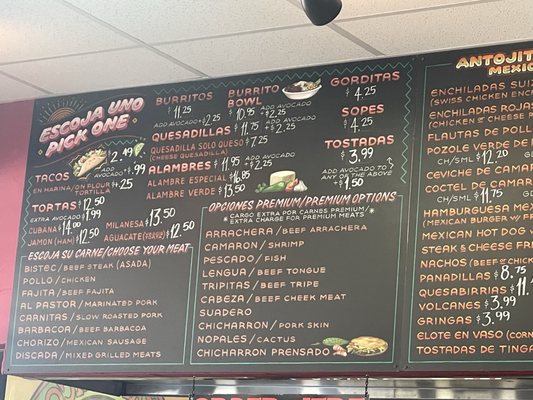 ESCOJA UNO
PICK ONE
TACOS $2.49
ADD AVOCADO +$.99
EN MARINA/ON FLOUR TORTILLA +$.25
TORTAS $12.50
EXTRA AVOCADO $1.99
CUBANA $14.00
JAMON (HAM) $12.50
MILANESA $13.50
AGUACATE $12.50
ESCOJA SU CARNE/CHOOSE YOUR MEAT
BISTEC/BEEF STEAK (ASADA)
POLLO/CHICKEN
FAJITA/BEEF FAJITA
AL PASTOR/MARINATED PORK
CARNITAS/SLOW ROASTED PORK
BARBACOA/BEEF BARBACOA
CHORIZO/MEXICAN SAUSAGE
DISCADA/MIXED GRILLED MEATS
BURRITOS $11.25
ADD AVOCADO +$2.25
BURRITO BOWL $10.95
ADD AVOCADO +$2.25
QUESADILLAS $11.75
ADD AVOCADO +$2.25
QUESADILLA SOLO QUESO $7.25
(CHEESE QUESADILLA)
ALAMBRES $11.95
ADD AVOCADO +$2.25
ALAMBRE ESPECIAL $16.85
ALAMBRE VERDE $13.50
GORDITAS $4.25
SOPES $4.25
TOSTADAS $3.99
ADD AVOCADO TO ANY OF THE ABOVE +$1.50
OPCIONES PREMIUM/PREMIUM OPTIONS
*CARGO EXTRA POR CARNES PREMIUM/
EXTRA CHARGE FOR PREMIUM MEATS*
ARRACHERA/BEEF ARRACHERA
CAMARON/SHRIMP
PESCADO/FISH
LENGUA/BEEF TONGUE
TRIPITAS/BEEF TRIPE
CABEZA/BEEF CHEEK MEAT
SUADERO
CHICHARRON/PORK SKIN
NOPALES/CACTUS
CHICHARRON PRENSADO
ANTOJIT
MEXIC
ENCHILADAS SUIZ
(SWISS CHICKEN ENCH
ENCHILADAS ROJAS
(CHICKEN OR CHEESE R
FLAUTAS DE POLL
POZOLE VERDE DE P
CH/SML $12.20
CEVICHE DE CAMAR
COCTEL DE CAMAR
CH/SML $11.75
HAMBURGUESA MEX
(MEXICAN BURGER W/ FR
MEXICAN HOT DOG W
STEAK & CHEESE FR
NACHOS (BEEF OR CHICK
PANADILLAS $8.75
QUESABIRRIAS $11.
VOLCANES $3.99
GRINGAS $3.99
ELOTE EN VASO (CORN
TOSTADAS DE TINGA